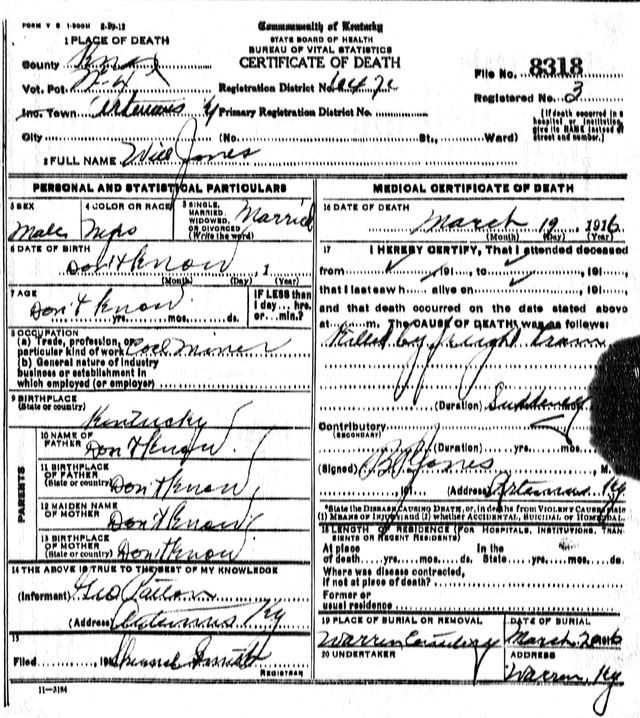 FORM V S 1-500M 2-29-12
Commonwealth of Kentucky
STATE BOARD OF HEALTH
BUREAU OF VITAL STATISTICS
CERTIFICATE OF DEATH
1 PLACE OF DEATH
County Knox
Vot. Pct.
Registration District No.
File No. 8318
Registered No. 3
Inc. Town Artemus Ky
Primary Registration District No.
City (No. St., Ward)
[If death occurred in a hospital or institution, give its NAME instead of street and number.]
2 FULL NAME Will Jones
PERSONAL AND STATISTICAL PARTICULARS
3 SEX
Male
4 COLOR OR RACE
5 SINGLE, MARRIED, WIDOWED, OR DIVORCED (Write the word)
Married
6 DATE OF BIRTH
Don't Know, 1
(Month) (Day) (Year)
7 AGE
Don't Know
yrs. mos. ds.
IF LESS than 1 day... hrs. or... min.?
8 OCCUPATION
(a) Trade, profession, or particular kind of work Coal Miner
(b) General nature of industry
business or establishment in
which employed (or employer)
9 BIRTHPLACE
(State or country)
Kentucky
PARENTS
10 NAME OF FATHER Don't Know
11 BIRTHPLACE OF FATHER (State or country) Don't Know
12 MAIDEN NAME OF MOTHER Don't Know
13 BIRTHPLACE OF MOTHER (State or country) Don't Know
14 THE ABOVE IS TRUE TO THE BEST OF MY KNOWLEDGE
(Informant) Geo Patton
(Address) Artemus Ky
15
Filed, 191
REGISTRAR
11-3184
MEDICAL CERTIFICATE OF DEATH
16 DATE OF DEATH
March 19, 1916
(Month) (Day) (Year)
17 I HEREBY CERTIFY, That I attended deceased
from, 191, to, 191,
that I last saw h alive on, 191,
and that death occurred on the date stated above
at m. The CAUSE OF DEATH was as follows:
Killed by freight train
(Duration) Suddenly mos.
Contributory
(SECONDARY)
(Duration) yrs. mos.
(Signed) Jones, M.
, 191 (Address) Artemus Ky.
*State the DISEASE CAUSING DEATH, or, in deaths from VIOLENT CAUSES, state
(1) MEANS OF INJURY; and (2) whether ACCIDENTAL, SUICIDAL or HOMICIDAL.
18 LENGTH OF RESIDENCE (FOR HOSPITALS, INSTITUTIONS, TRANSIENTS OR RECENT RESIDENTS)
At place of death yrs. mos. ds. In the State yrs. mos. ds.
Where was disease contracted,
if not at place of death?
Former or
usual residence
19 PLACE OF BURIAL OR REMOVAL
Warren
DATE OF BURIAL
March 20
20 UNDERTAKER
ADDRESS
Warren, Ky